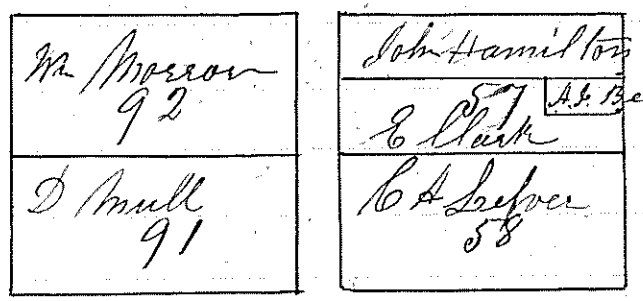 Wm Morrow
92
D Mull
91
John Hamilton
57
A.J. Be
E Clark
C A Lefver
58